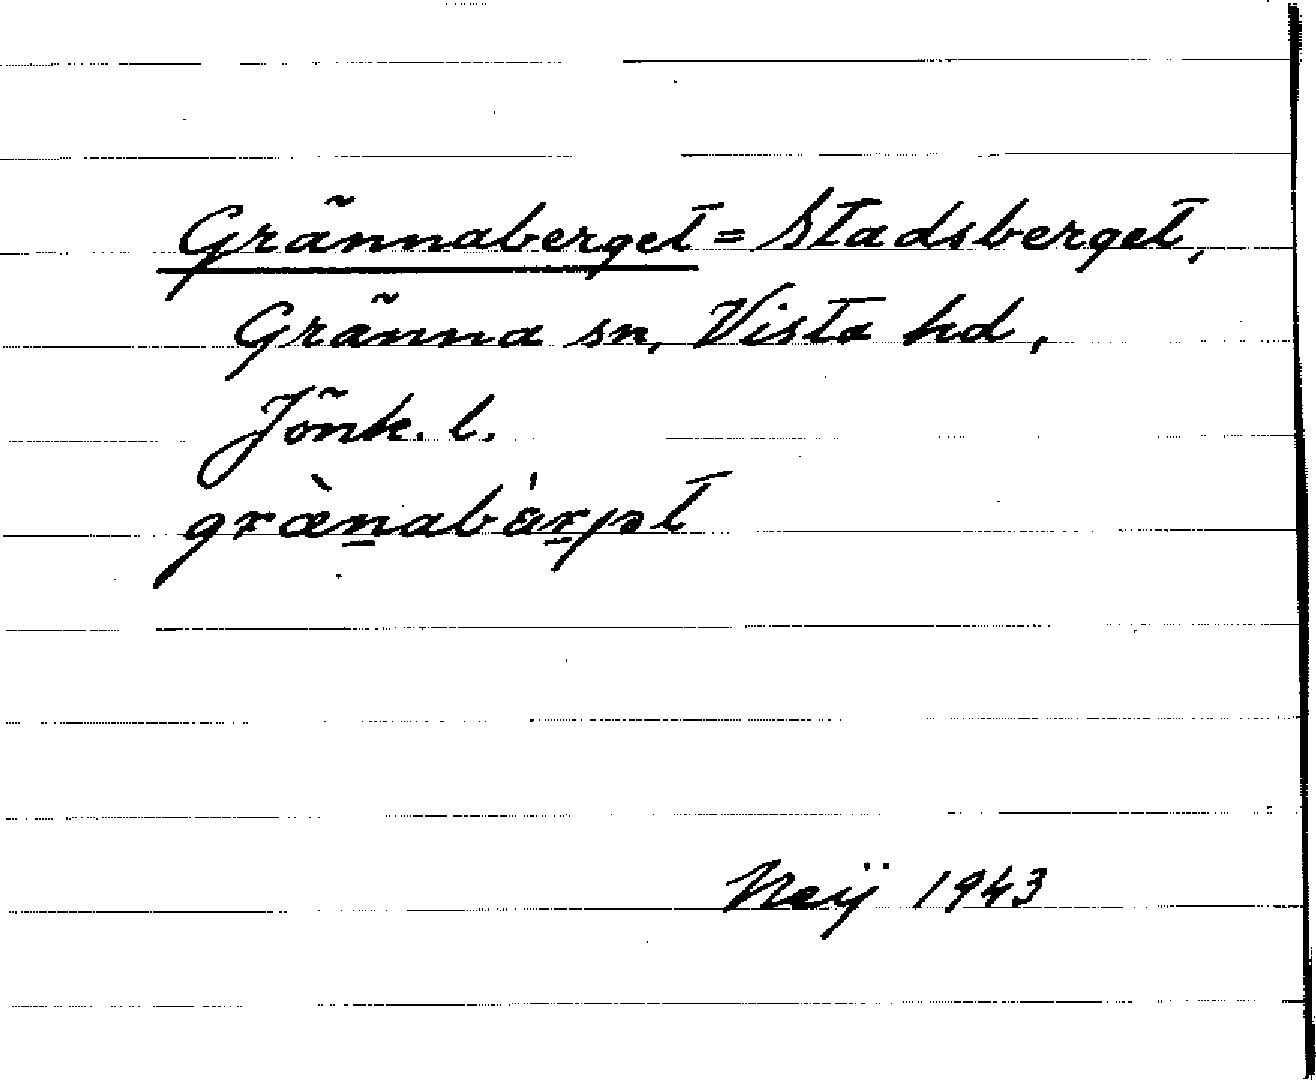 Grännaberget = Stadsberget,
Gränna sn, Vista hd,
Jönk. l.
græ̀n̲abár̲jət
Neij 1943